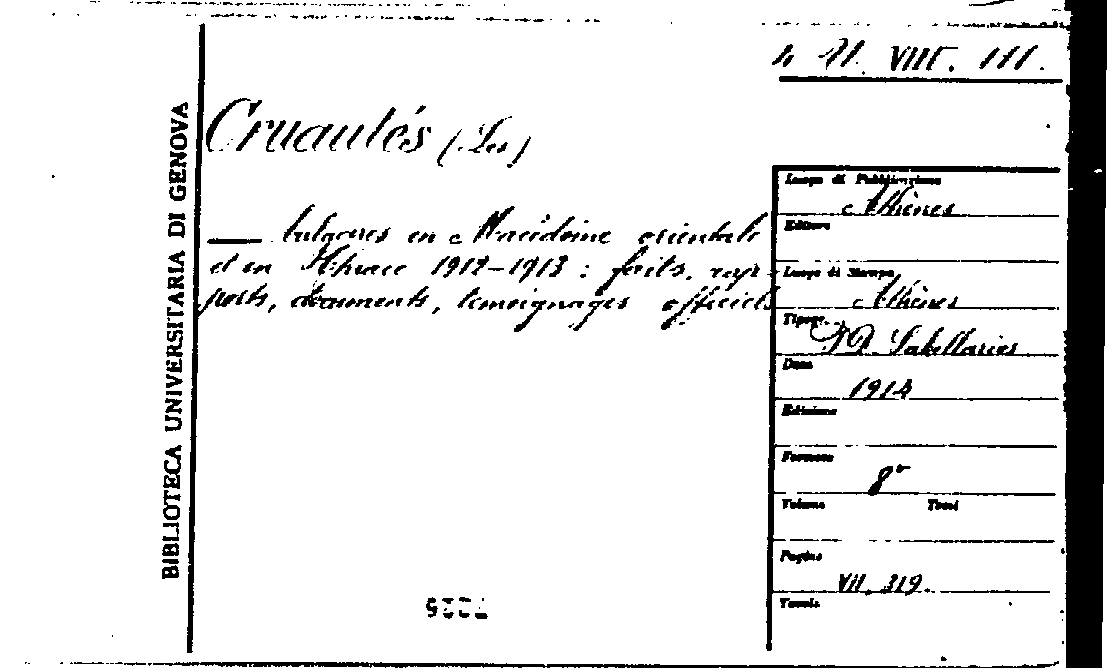 VIII. 111.
Cruautés (Les)
BIBLIOTECA UNIVERSITARIA DI GENOVA
— bulgares en Macédoine orientale
et en Thrace 1912-1913 : faits, rap-
ports, documents, témoignages officiels
Luogo di Pubblicazione
Athènes
Editore
Luogo di Stampa
Athènes
Tipogr.
P. D. Sakellarios
Data
1914
Edizione
Formato
8°
Volume Tomi
Pagine
VII. 319.
Tavole